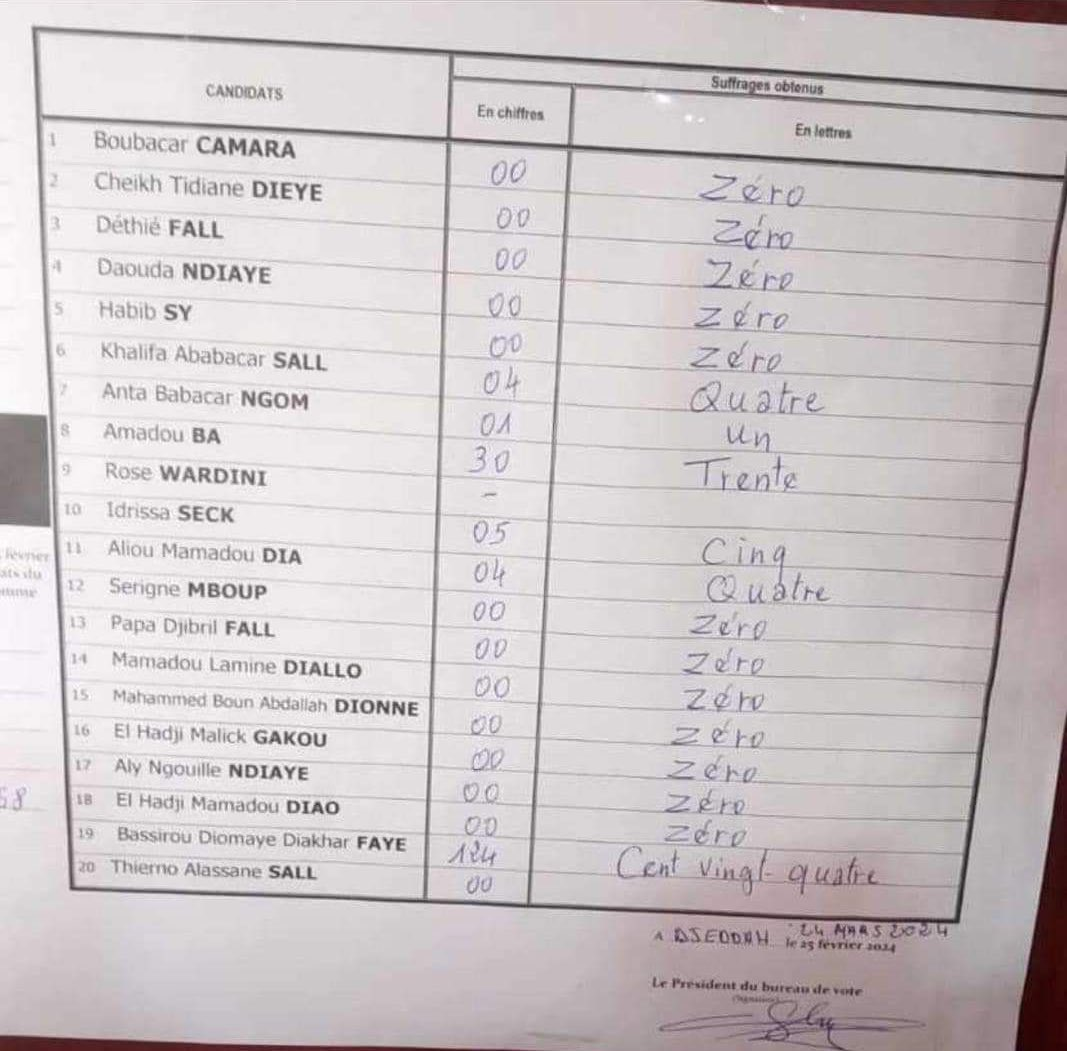 Suffrages obtenus
CANDIDATS En chiffres En lettres
1 Boubacar CAMARA 00 Zéro
2 Cheikh Tidiane DIEYE 00 Zéro
3 Déthié FALL 00 Zéro
4 Daouda NDIAYE 00 Zéro
5 Habib SY 00 Zéro
6 Khalifa Ababacar SALL 04 Quatre
7 Anta Babacar NGOM 01 Un
8 Amadou BA 30 Trente
9 Rose WARDINI -
10 Idrissa SECK 05 Cinq
11 Aliou Mamadou DIA 04 Quatre
12 Serigne MBOUP 00 Zéro
13 Papa Djibril FALL 00 Zéro
14 Mamadou Lamine DIALLO 00 Zéro
15 Mahammed Boun Abdallah DIONNE 00 Zéro
16 El Hadji Malick GAKOU 00 Zéro
17 Aly Ngouille NDIAYE 00 Zéro
18 El Hadji Mamadou DIAO 00 Zéro
19 Bassirou Diomaye Diakhar FAYE 124 Cent vingt-quatre
20 Thierno Alassane SALL 00
février
68
24 MARS 2024
A DJEDDAH le 25 février 2024
Le Président du bureau de vote
(Signature)